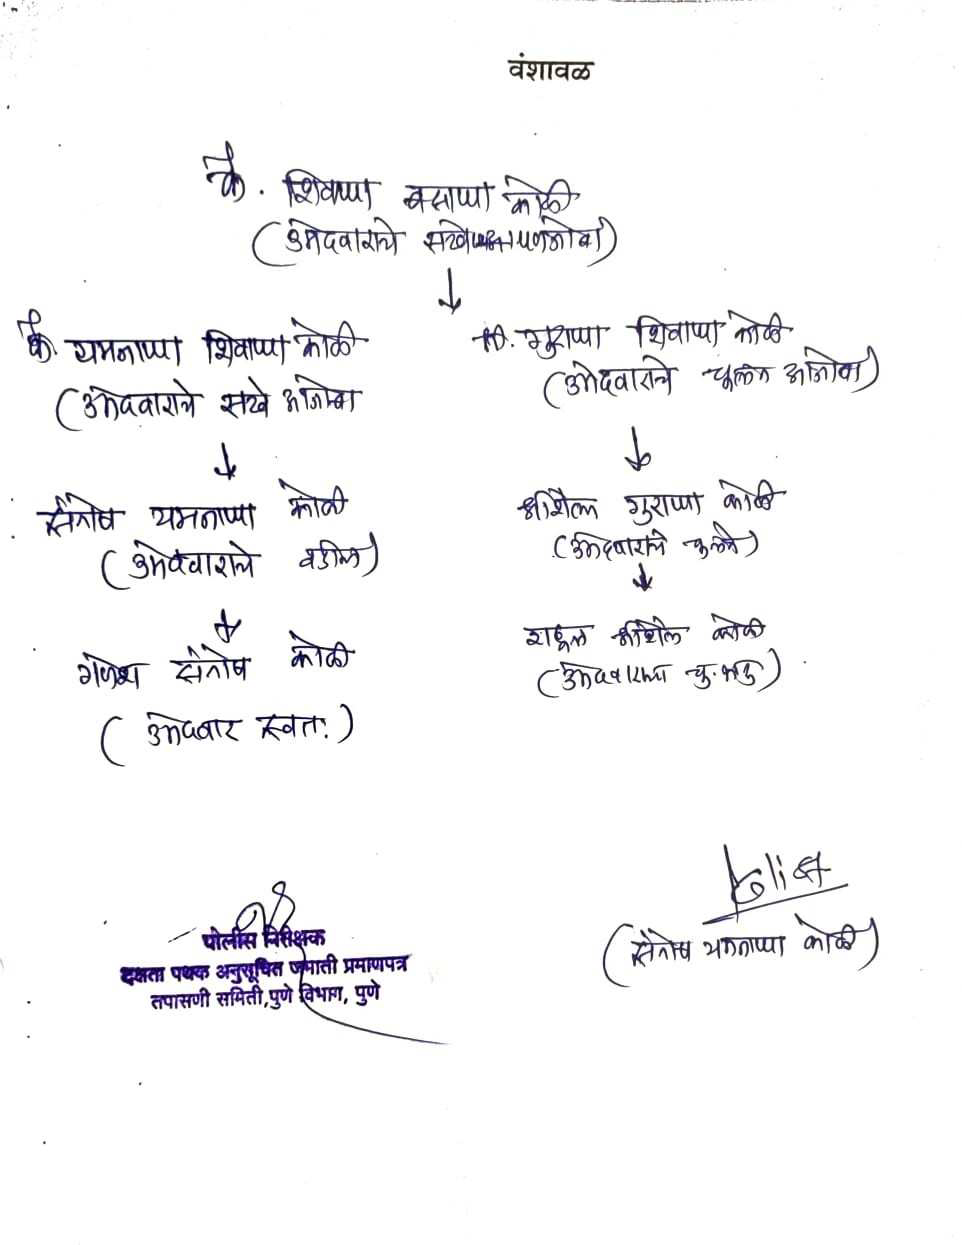 वंशावळ
कै. शिवप्पा बसाप्पा कोळी
(उमेदवाराचे सख्खे पणजोबा)
कै. यमनाप्पा शिवाप्पा कोळी
(उमेदवाराचे सखे आजोबा
कै. गुराप्पा शिवाप्पा कोळी
(उमेदवाराचे चुलत आजोबा)
संतोष यमनाप्पा कोळी
(उमेदवाराचे वडील)
श्रीशैल गुराप्पा कोळी
(उमेदवाराचे चुलते)
गणेश संतोष कोळी
(उमेदवार स्वतः)
राहूल श्रीशैल कोळी
(उमेदवाराचा चु. भाऊ)
पोलीस निरीक्षक
दक्षता पथक अनुसूचित जमाती प्रमाणपत्र
तपासणी समिती, पुणे विभाग, पुणे
(संतोष यमनाप्पा कोळी)